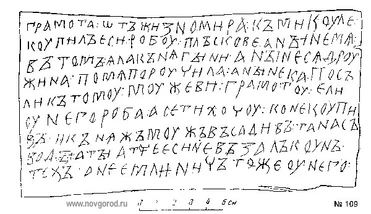 ГРАМОТА:ѠТЪЖИЗНОМИРА:КЪМИКОУЛЕ:
КОУПИЛЪЕСИ:РОБОУ:ПЛЪСКОВЕ:АНЫНЕМѦ:
ВЪТОМЪ:ѦЛАКЪНѦГЫНИ:АНЫНЕСѦДРОУ
ЖИНА:ПОМѦПОРОУЧИЛА:АНЫНЕКА:ПОСЪ
ЛИКЪТОМОУ:МОУЖЕВИ:ГРАМОТОУ:ЕЛИ
ОУНЕГОРОБА:АСЕТИХОЧОУ:КОНЕКОУПИ
ВЪ:ИКЪНѦЖЪМОУЖЪВЪСАДИВЪ:ТАНАСЪ
ВОДЪ:АТЫАТЧЕЕСИНЕВЪЗАЛЪКОУНЪ:
ТЕХЪ:АНЕЕМЛИ:НИЧЪТОЖЕОУНЕГО:
www.novgorod.ru 0 1 2 3 4 5 см № 109